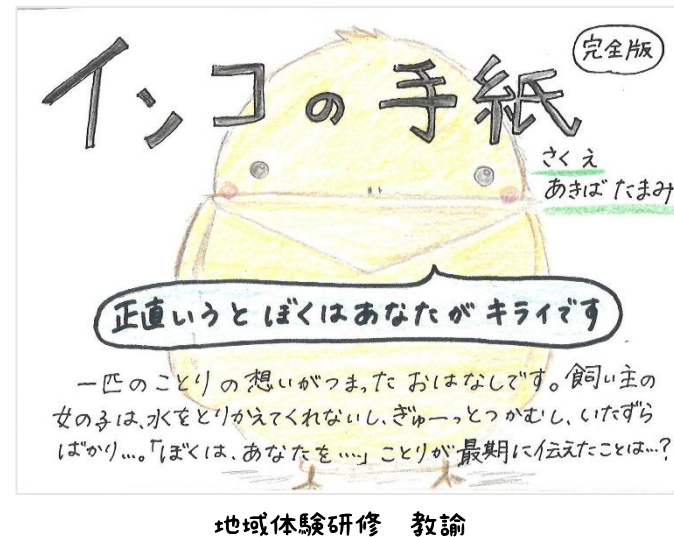 インコの手紙
完全版
さくえ
あきばたまみ
正直いうとぼくはあなたがキライです
一匹のことりの想いがつまったおはなしです。飼い主の
女の子は、水をとりかえてくれないし、ぎゅーっとつかむし、いたずら
ばかり…。「ぼくは、あなたを…」ことりが最期に伝えたことは…?
地域体験研修　教諭